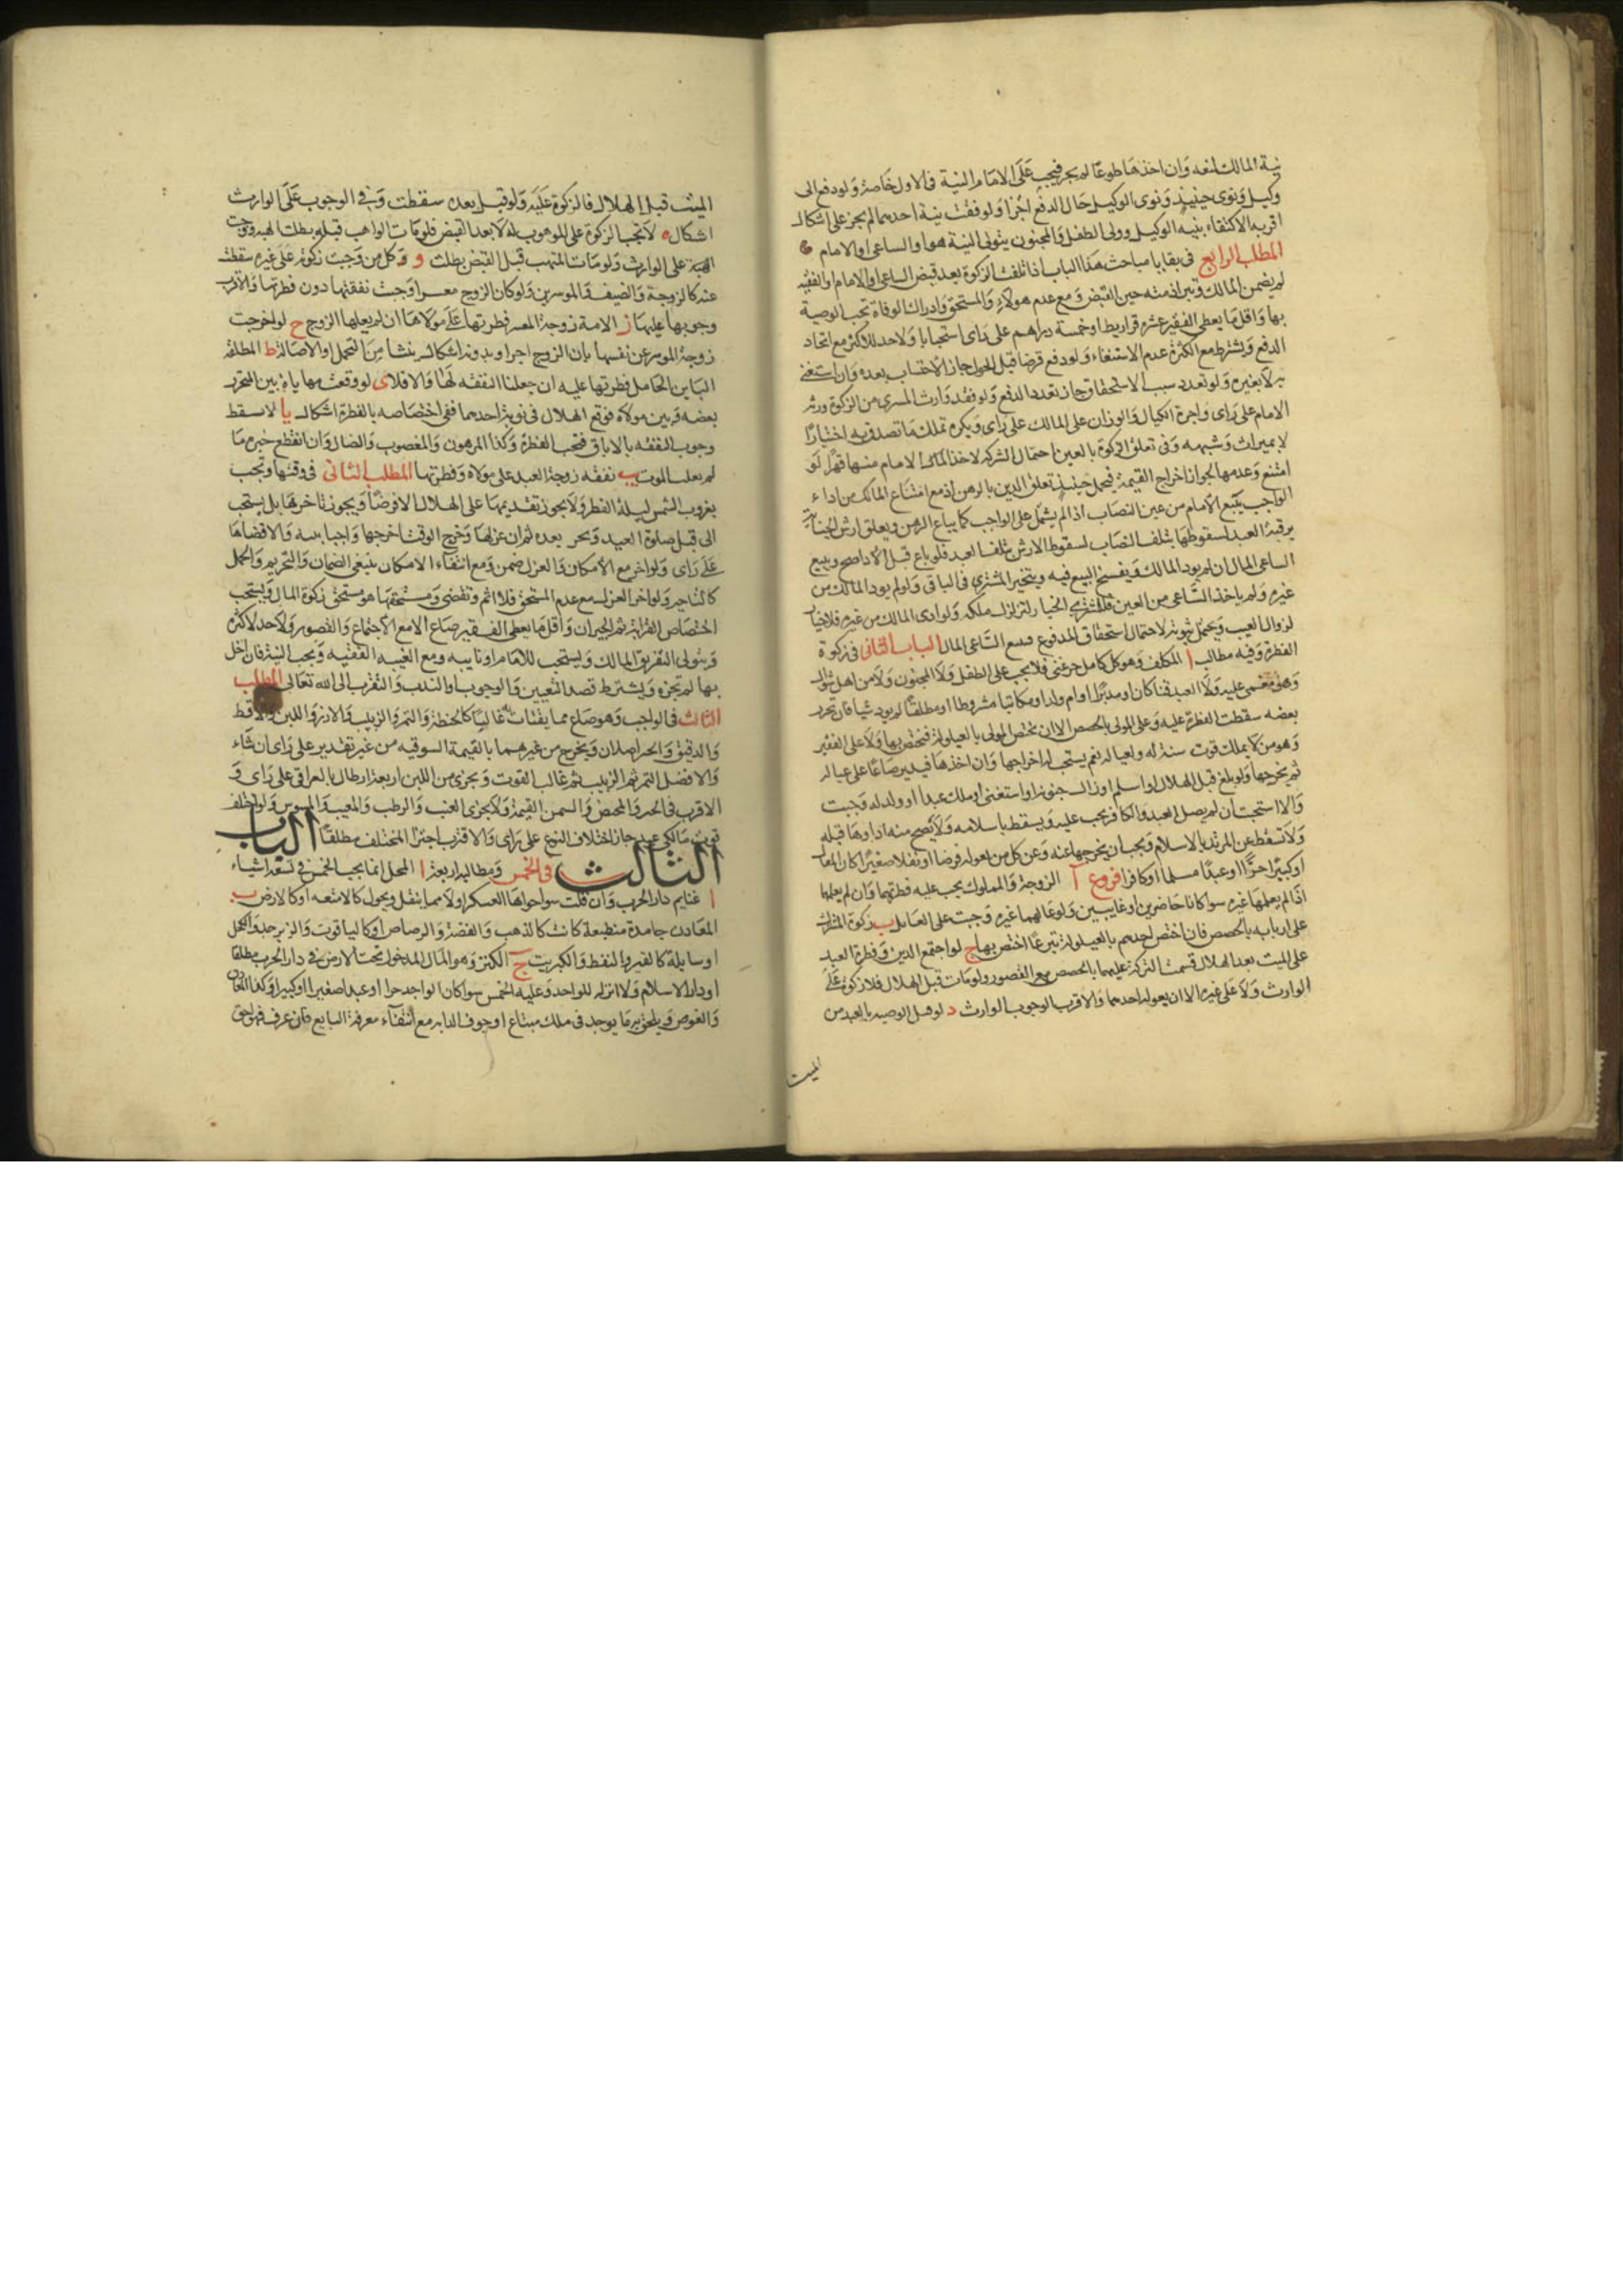 نية المالك لمنعه وان اخذها طوعا لم يجز فيجب على الامام النية في الاول خاصة ولو دفع الى
وكيل ونوى حينئذ ونوى الوكيل حال الدفع اجزا ولو فقدت نية احدهما لم يجز على اشكال
اقربه الاكتفاء بنية الوكيل وولى الطفل والمجنون يتولى النية هو او الساعى او الامام
المطلب الرابع في بقايا مباحث هذا الباب اذا تلفت الزكوة بعد قبض الساعى او الامام او الفقيه
لم يضمن المالك وتبرا ذمته حين القبض ومع عدم هولاء والمستحق وادراك الوفاة تجب الوصية
بها واقل ما يعطى الفقير عشرة قراريط او خمسة دراهم على راى استحبابا ولا حد للاكثر مع اتحاد
الدفع ويشترط مع الكثرة عدم الاستغناء ولو دفع قرضا قبل الحول جاز الاحتساب بعده وان استغنى
به لا بغيره ولو تعدد سبب الاستحقاق جاز تعدد الدفع ولو فقد وارث المسرى من الزكوة ورثه
الامام على راى واجرة الكيال والوزان على المالك على راى ويكره تملك ما تصدق به اختيارا
لا بميراث وشبهه وفي تعلق الزكوة بالعين احتمال الشركة لاخذ الامام منها قهرا لو
امتنع وعدمها لجواز اخراج القيمة فيحمل حينئذ تعلق الدين بالرهن اذ مع امتناع المالك من اداء
الواجب يتبع الامام من عين النصاب اذا لم يشمل على الواجب كما يباع الرهن ويعلق ارش الجناية
برقبة العبد لسقوطها بتلف النصاب لسقوط الارش بتلف العبد فلو باع قبل الاداء صح ويبيع
الساعى المال ان لم يود المالك وينفسخ البيع فيه ويتخير المشترى في الباقى ولو لم يود المالك من
غيره ولم ياخذ الساعى من العين فللمشترى الخيار لتزلزل ملكه ولو ادى المالك من غيره فلا خيار
لزوال العيب ويحتمل ثبوته لاحتمال استحقاق المدفوع الساعى المال الباب الثانى في زكوة
الفطرة وفيه مطالب ا المكلف وهو كل كامل حر غنى فلا يجب على الطفل ولا المجنون ولا من اهل شوال
وهو مغمى عليه ولا العبد قنا كان او مدبرا او ام ولد او مكاتبا مشروطا او مطلقا لم يود شيا فان تحرر
بعضه سقطت الفطرة عليه وعلى المولى بالحصص الا ان يختص المولى بالعيلولة فيختص بها ولا على الفقير
وهو من لا يملك قوت سنة له ولعياله نعم يستحب له اخراجها وان اخذها فيدير صاعا على عياله
ثم يخرجها ولو بلغ قبل الهلال او اسلم او زال جنونه او استغنى او ملك عبدا او ولد له وجبت
والا استحبت ان لم يصل العيد والكافر يجب عليه ويسقط باسلامه ولا يصح منه اداوها قبله
ولا تسقط عن المرتد بالاسلام ويجب ان يخرجها عنه وعن كل من يعوله فرضا او نفلا صغيرا كان المعال
او كبيرا حرا او عبدا مسلما او كافرا فروع ا الزوجة والمملوك يجب عليه فطرتهما وان لم يعلهما
اذا لم يعلهما غيره سواء كانا حاضرين او غايبين ولو عالهما غيره وجبت على العايل ب زكوة المشترك
على اربابه بالحصص فان اختص احدهم بالعيلولة تبرعا اختص بها ج لو اجتمع الدين وفطرة العبد
على الميت بعد الهلال قسمت التركة عليهما بالحصص مع القصور ولو مات قبل الهلال فلا زكوة على
الوارث ولا على غيره الا ان يعوله احدهما والاقرب الوجوب الوارث د لو قبل الوصية بالعبد من
الميت
الميت قبل الهلال فالزكوة عليه ولو قبل بعده سقطت وفي الوجوب على الوارث
اشكال ه لا تجب الزكوة على الموهوب له الا بعد القبض فلو مات الواهب قبله بطلت الهبة ووجبت
الهبة على الوارث ولو مات المتهب قبل القبض بطلت و وكل من وجبت زكوته على غيره سقطت
عنه كالزوجة والضيف الموسرين ولو كان الزوج معسرا وجبت نفقتها دون فطرتها والاقرب
وجوبها عليها ز الامة زوجة المعسر فطرتها على مولاها ان لم يعلها الزوج ح لو اخرجت
زوجة الموسر عن نفسها باذن الزوج اجزا وبدونه اشكال ينشا من التحمل او الاصالة ط المطلقة
البائن الحامل فطرتها عليه ان جعلنا النفقة لها والا فلا ى لو وقعت مهاياة بين المتحرر
بعضه وبين مولاه فوقع الهلال في نوبة احدهما ففى اختصاصه بالفطرة اشكال يا لا تسقط
وجوب النفقة بالاباق فتجب الفطرة وكذا المرهون والمغصوب والضال وان انقطع خبره ما
لم يعلم الموت يب نفقة زوجة العبد على مولاه وفطرتها المطلب الثانى في وقتها وتجب
بغروب الشمس ليلة الفطر ولا يجوز تقديمها على الهلال الا قرضا ويجوز تاخيرها بل يستحب
الى قبل صلوة العيد ويحرم بعده ثم ان عزلها وخرج الوقت اخرجها واجبا بنية والا قضاها
على راى ولو اخر مع الامكان والعزل ضمن ومع انتفاء الامكان ينتفى الضمان والتحريم والحمل
كالتاخير ولو اخر العزل مع عدم المستحق فلا اثم وتقضى ومستحقها هو مستحق زكوة المال ويستحب
اختصاص القرابة ثم الجيران واقل ما يعطى الفقير صاع الا مع الاجتماع والقصور ولا حد لاكثره
ويتولى التفريق المالك ويستحب للامام او نايبه ومع الغيبة الفقيه ويجب النية فان اخل
بها لم تجزه ويشترط قصد التعيين والوجوب او الندب والتقرب الى الله تعالى المطلب
الثالث في الواجب وهو صاع مما يقتات غالبا كالحنطة والتمر والزبيب والارز واللبن والاقط
والدقيق والخبز اصلان ويخرج من غيرهما بالقيمة السوقية من غير تقدير على راى ان شاء
والافضل التمر ثم الزبيب ثم غالب القوت ويجزى من اللبن اربعة ارطال بالعراقى على راى و
الاقرب في الخبز والمخيض والسمن القيمة ولا يجزى العنب والرطب والمعيب والمسوس ولو اختلف
قوت مالكى عبد جاز اختلاف النوع على راى والاقرب اجزاء المختلف مطلقا الباب
الثالث في الخمس ومطالبه اربعة ا المحل انما يجب الخمس في تسعة اشياء
ا غنايم دار الحرب وان قلت سوا حواها العسكر اولا مما ينقل ويحول كالامتعة او كالارض ب
المعادن جامدة منطبعة كانت كالذهب والفضة والرصاص او كالياقوت والزبرجد والكحل
او سايلة كالقير والنفط والكبريت ج الكنز وهو المال المدخول تحت الارض في دار الحرب مطلقا
او دار الاسلام ولا اثر له للواجد وعليه الخمس سوا كان الواجد حرا او عبدا صغيرا او كبيرا وكذا المعادن
والغوص ويلحق به ما يوجد في ملك مبتاع او جوف الدابة مع انتفاء معرفة البايع فان عرف فهو احق